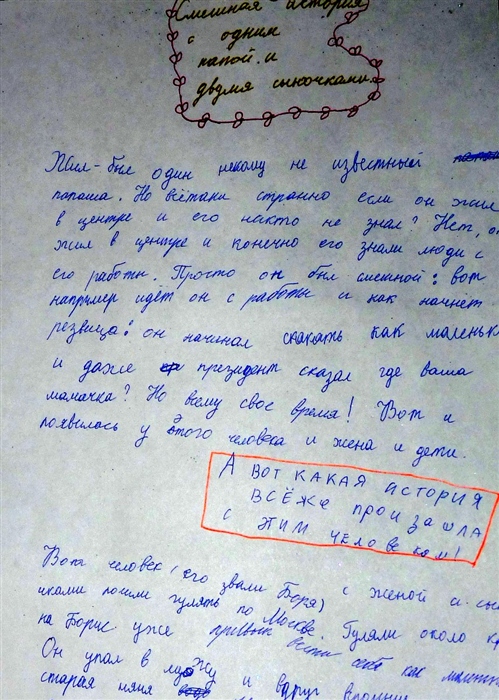 Смешная история
с одним
папой и
двумя сыночками.
Жил-был один некому не известный
папаша. Но всётаки странно если он жил
в центре и его никто не знал? Нет, он
жил в центре и конечно его знали люди с
его работы. Просто он был смешной: вот
например идёт он с работы и как начнёт
резвица: он начинал скакать как маленьк
и даже президент сказал где ваша
мамачка? Но всему своё время! Вот и
появилась у этого человека и жена и дети.
А ВОТ КАКАЯ ИСТОРИЯ
ВСЁЖЕ ПРОИЗАШЛА
С ЭТИМ ЧЕЛОВЕКОМ!
Вот человек (его звали Боря) с женой и сы
иками пошли гулять по Москве. Гуляли около кр
на Борис уже привык вести себя как маленьк
Он упал в лужу и вдруг
старая няня